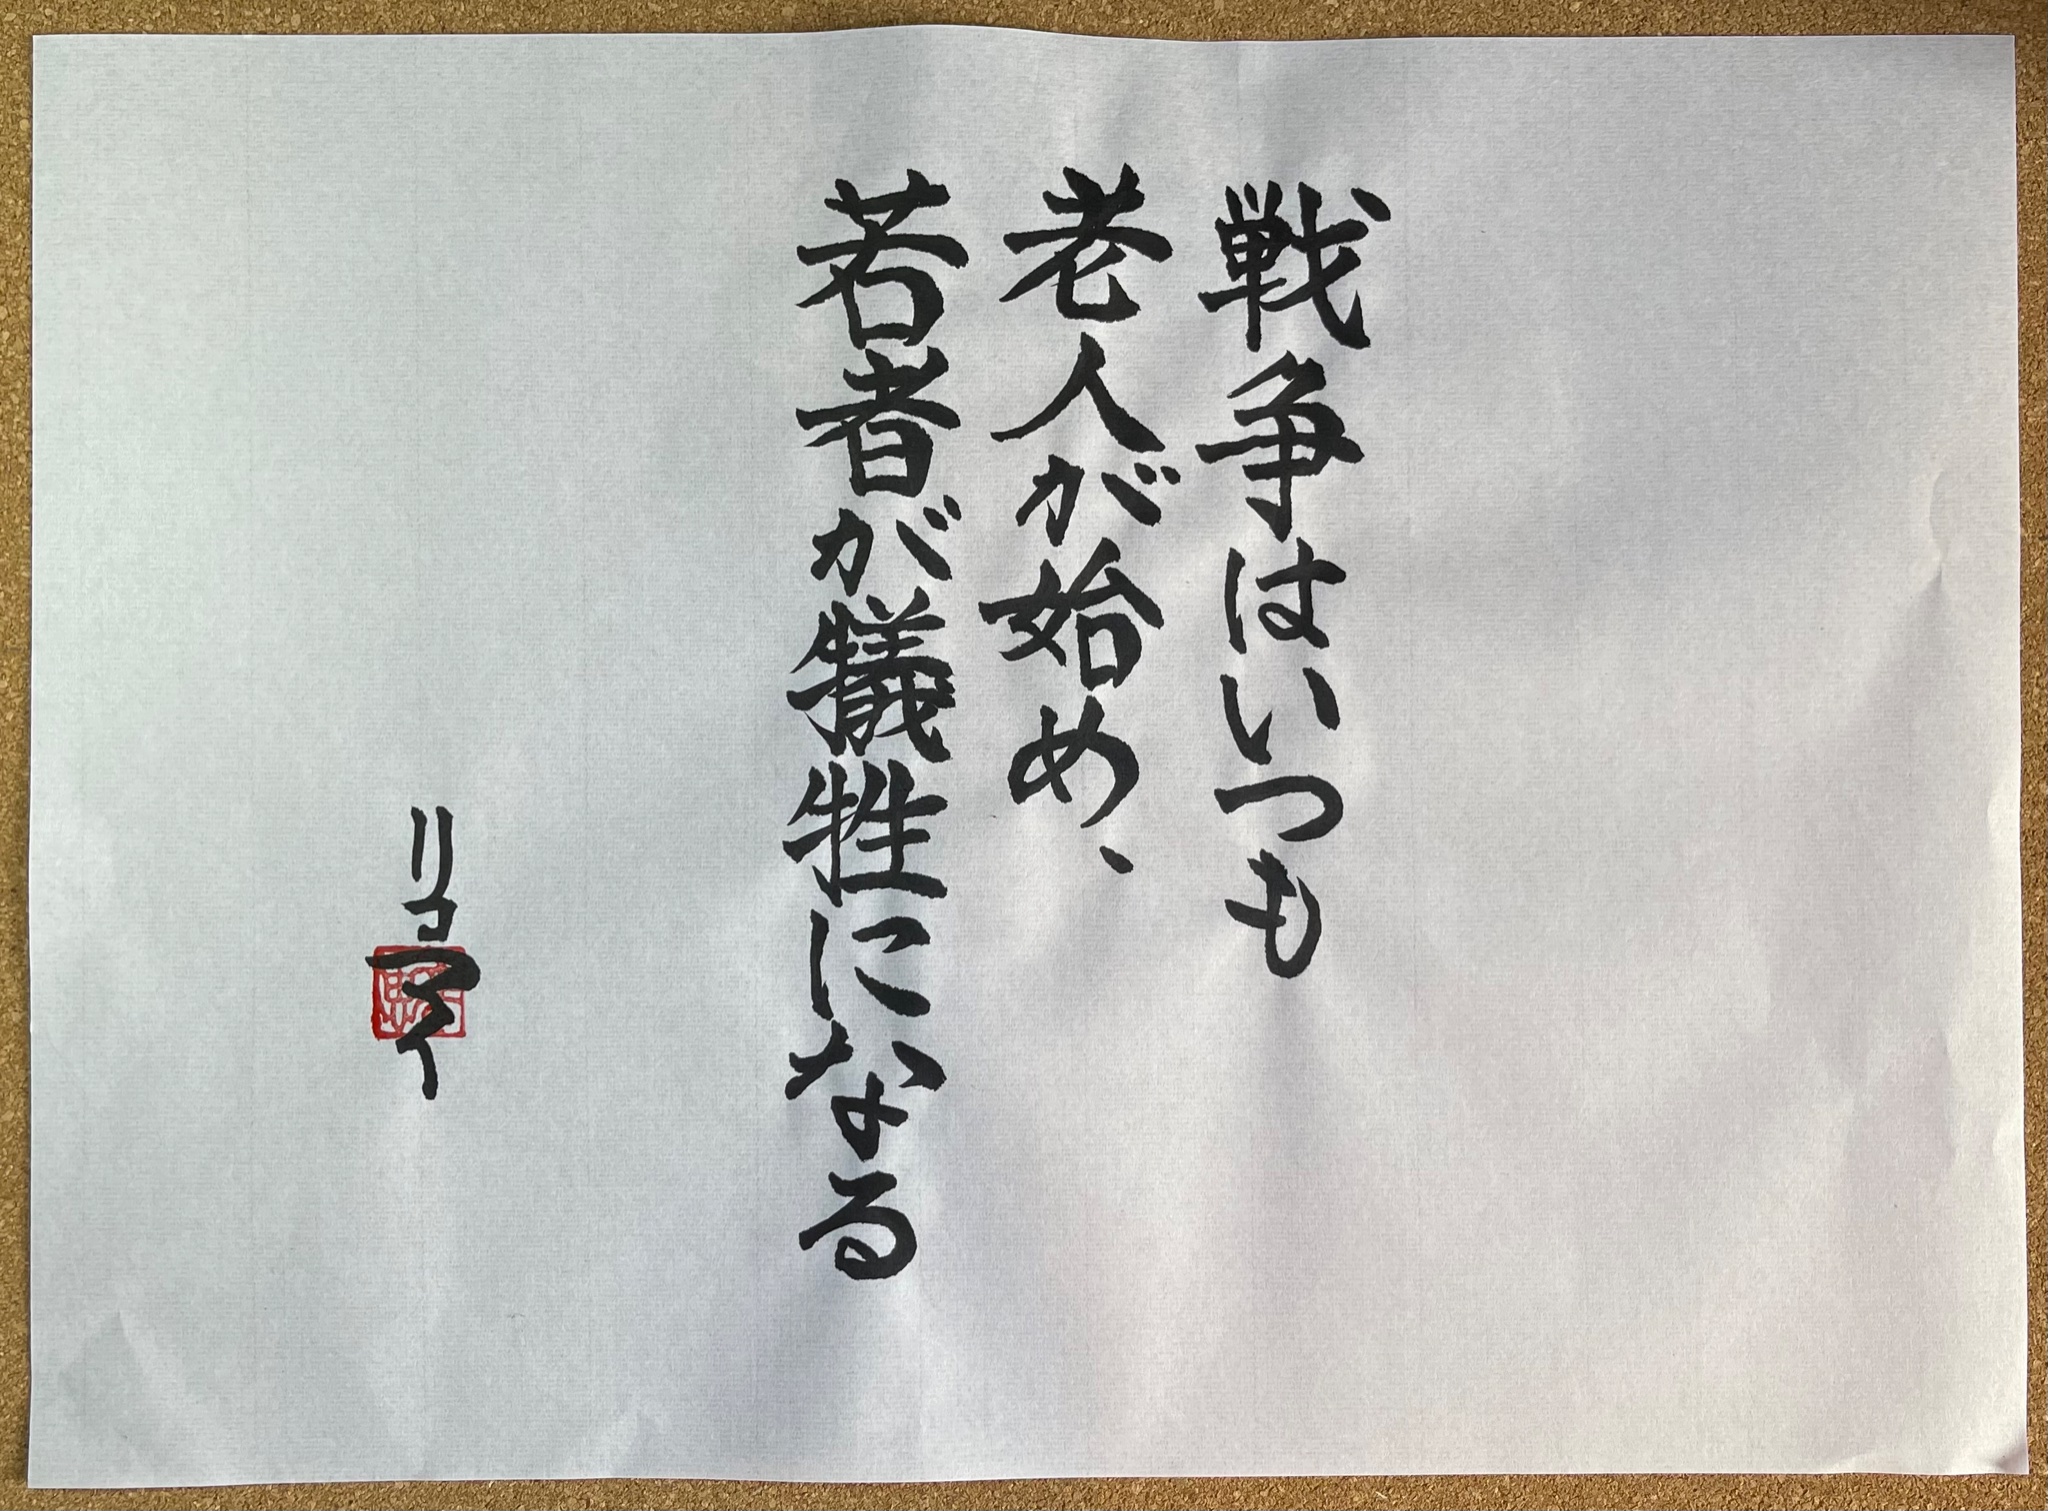 戦争はいつも
老人が始め、
若者が犠牲になる
リコマイ